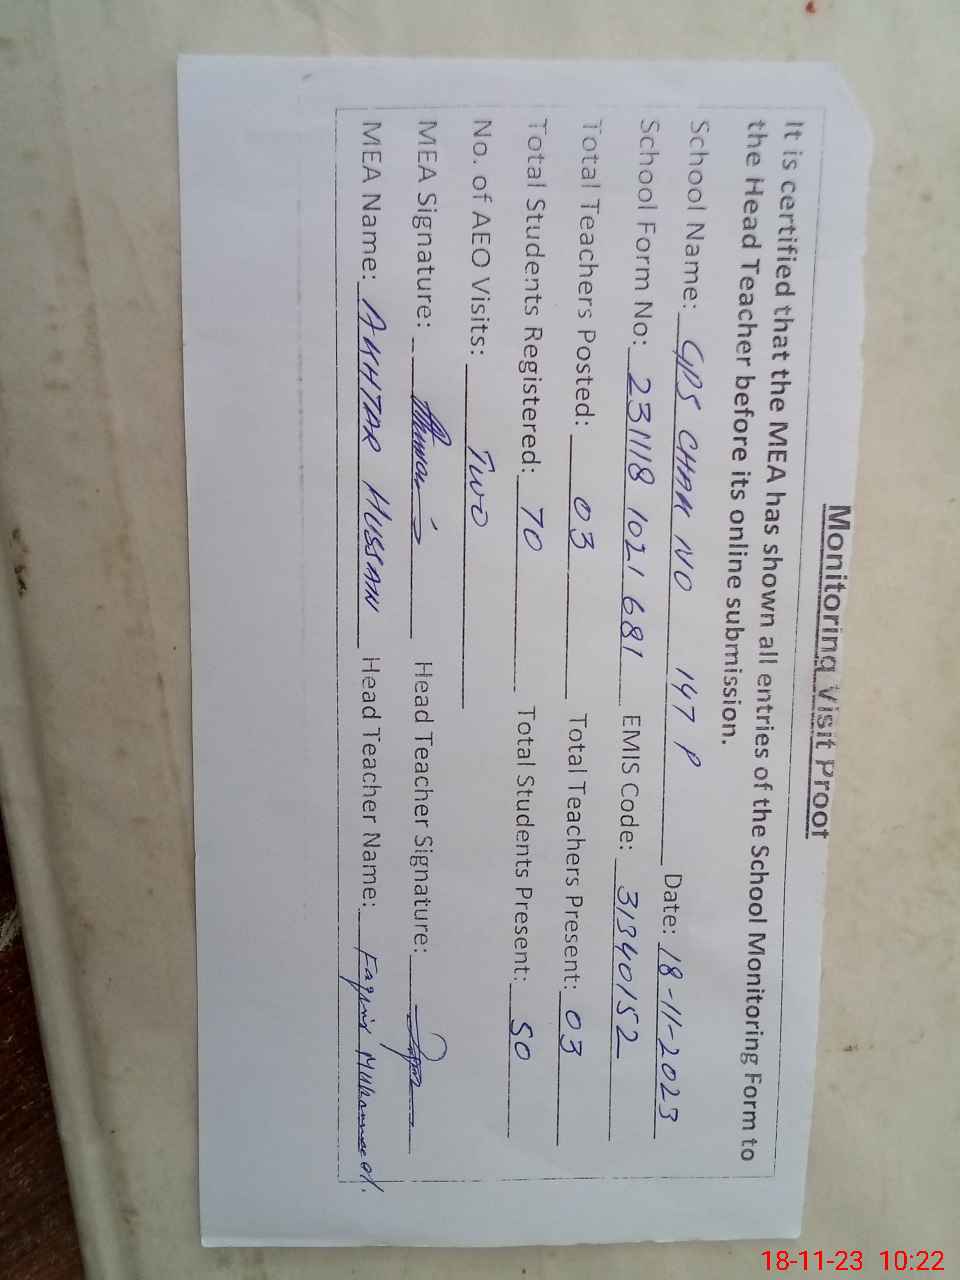 Monitoring Visit Proof
It is certified that the MEA has shown all entries of the School Monitoring Form to
the Head Teacher before its online submission.
School Name: GPS CHAK NO 147 P Date: 18-11-2023
School Form No: 231118 1021 681 EMIS Code: 31340152
Total Teachers Posted: 03 Total Teachers Present: 03
Total Students Registered: 70 Total Students Present: 50
No. of AEO Visits: Two
MEA Signature: Head Teacher Signature:
MEA Name: AKHTAR HUSSAN Head Teacher Name: Faqir Muhammad.
18-11-23 10:22